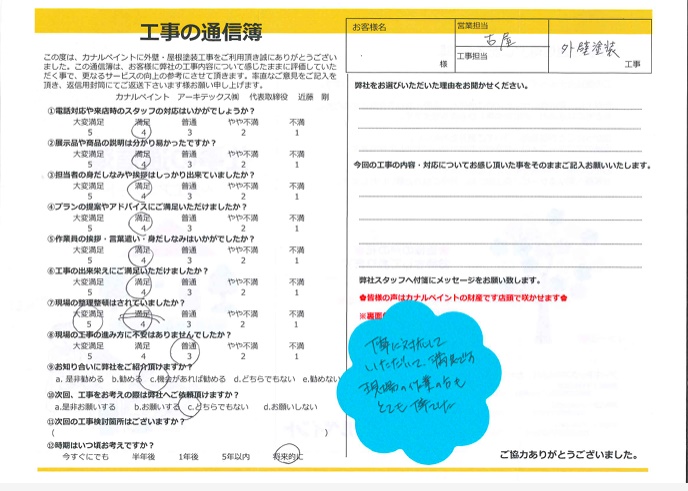 工事の通信簿
この度は、カナルペイントに外壁・屋根塗装工事をご利用頂き誠にありがとうござい
ました。この通信簿は、お客様に弊社の工事内容について感じたままに評価していた
だく事で、更なるサービスの向上の参考にさせて頂きます。率直なご意見をご記入を
頂き、返信用封筒にてご返送下さいます様お願い申し上げます。
カナルペイント アーキテックス㈱ 代表取締役 近藤 剛
①電話対応や来店時のスタッフの対応はいかがでしょうか？
大変満足 満足 普通 やや不満 不満
5 4 3 2 1
②展示品や商品の説明は分かり易かったですか？
大変満足 満足 普通 やや不満 不満
5 4 3 2 1
③担当者の身だしなみや挨拶はしっかり出来ていましたか？
大変満足 満足 普通 やや不満 不満
5 4 3 2 1
④プランの提案やアドバイスにご満足いただけましたか？
大変満足 満足 普通 やや不満 不満
5 4 3 2 1
⑤作業員の挨拶・言葉遣い・身だしなみはいかがでしたか？
大変満足 満足 普通 やや不満 不満
5 4 3 2 1
⑥工事の出来栄えにご満足いただけましたか？
大変満足 満足 普通 やや不満 不満
5 4 3 2 1
⑦現場の整理整頓はされていましたか？
大変満足 満足 普通 やや不満 不満
5 4 3 2 1
⑧現場の工事の進み方に不安はありませんでしたか？
大変満足 満足 普通 やや不満 不満
5 4 3 2 1
⑨お知り合いに弊社をご紹介頂けますか？
a. 是非勧める b.勧める c.機会があれば勧める d.どちらでもない e.勧めない
⑩次回、工事をお考えの際は弊社へご依頼頂けますか？
a.是非お願いする b.お願いする c.どちらでもない d.お願いしない
⑪次回の工事検討箇所はございますか？
( )
⑫時期はいつ頃お考えですか？
今すぐにでも 半年後 1年後 5年以内 将来的に
お客様名
様
営業担当
古屋
工事担当
外壁塗装
工事
弊社をお選びいただいた理由をお聞かせください。
今回の工事の内容・対応についてお感じ頂いた事をそのままご記入お願いいたします。
弊社スタッフへ付箋にメッセージをお願い致します。
✿皆様の声はカナルペイントの財産です店頭で咲かせます✿
※裏面
丁寧に対応して
いただいて、満足です
現場の作業の方も
とても
ご協力ありがとうございました。